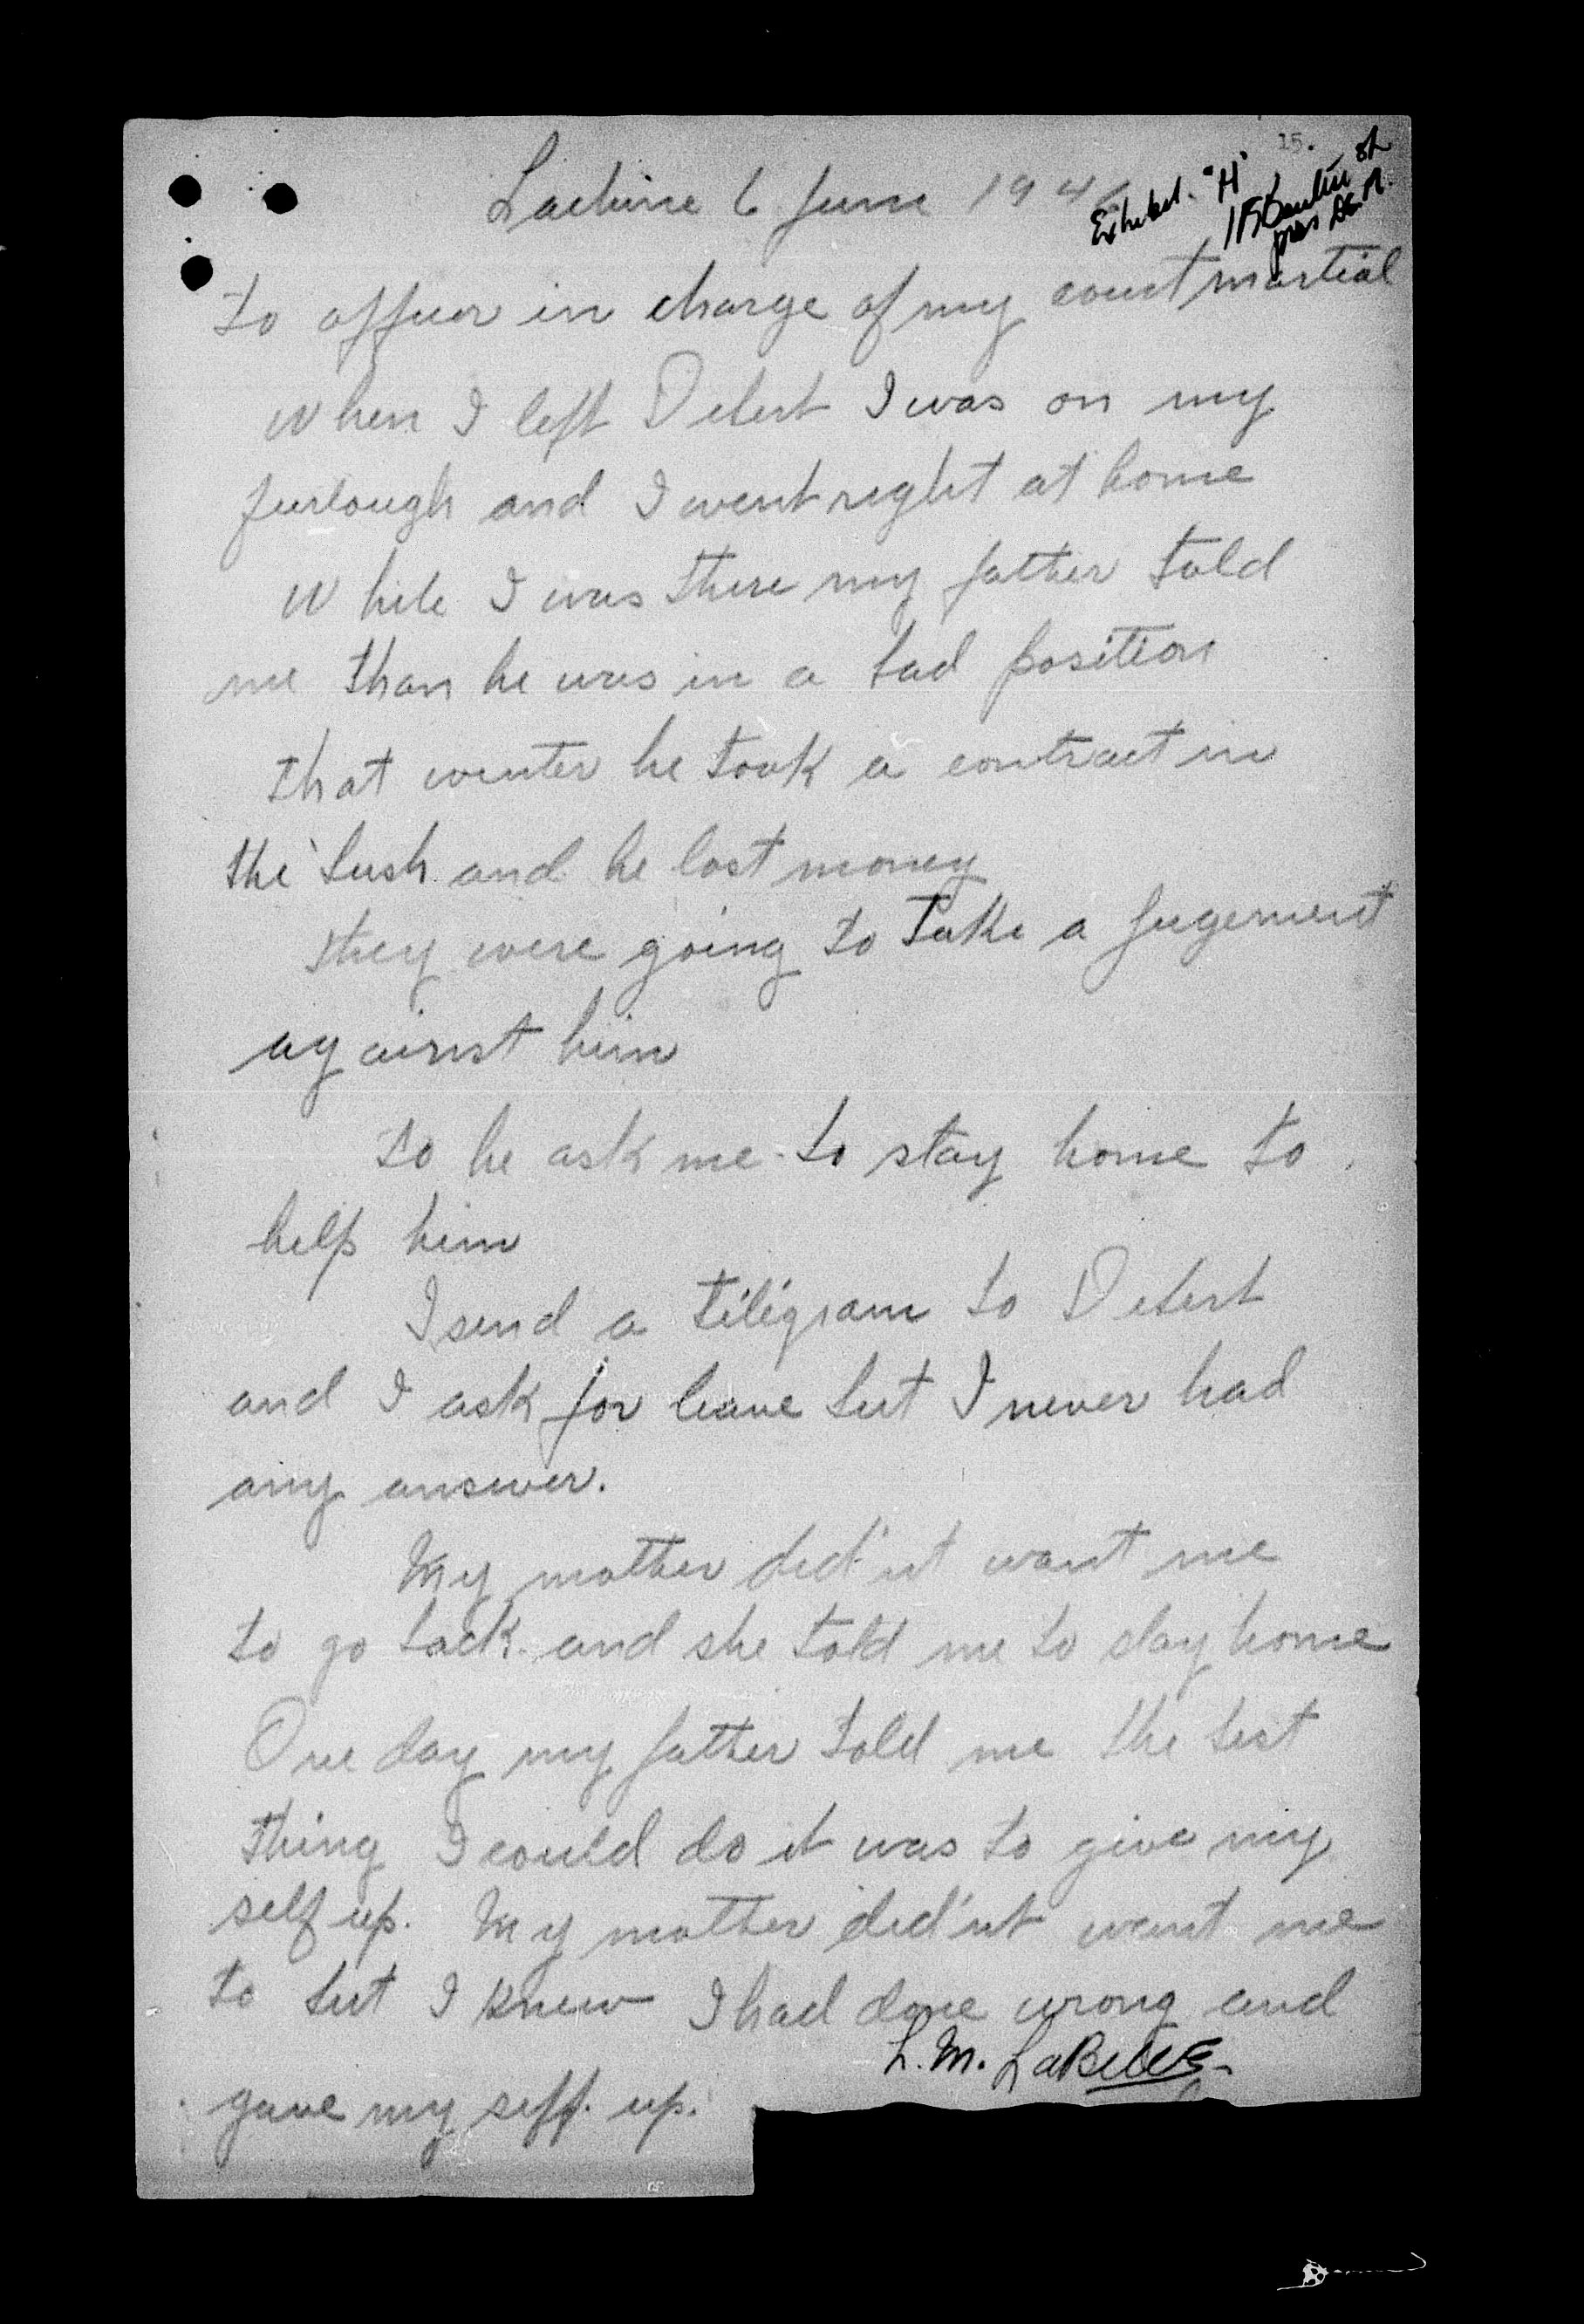 15.
Exhibit "H"
Lachine 6 June 194
to officer in charge of my court martial
When I left Debert I was on my
furlough and I went right at home
While I was there my father told
me than he was in a bad position
that winter he took a contract in
the bush and he lost money
they were going to take a jugement
against him
so he ask me to stay home to
help him
I send a télégram to Debert
and I ask for leave but I never had
any answer.
My mother did'nt want me
to go back and she told me to stay home
One day my father told me the best
thing I could do it was to give my
self up. My mother did'nt want me
to but I knew I had done wrong and
gave my self up.
L. M. LaBelle